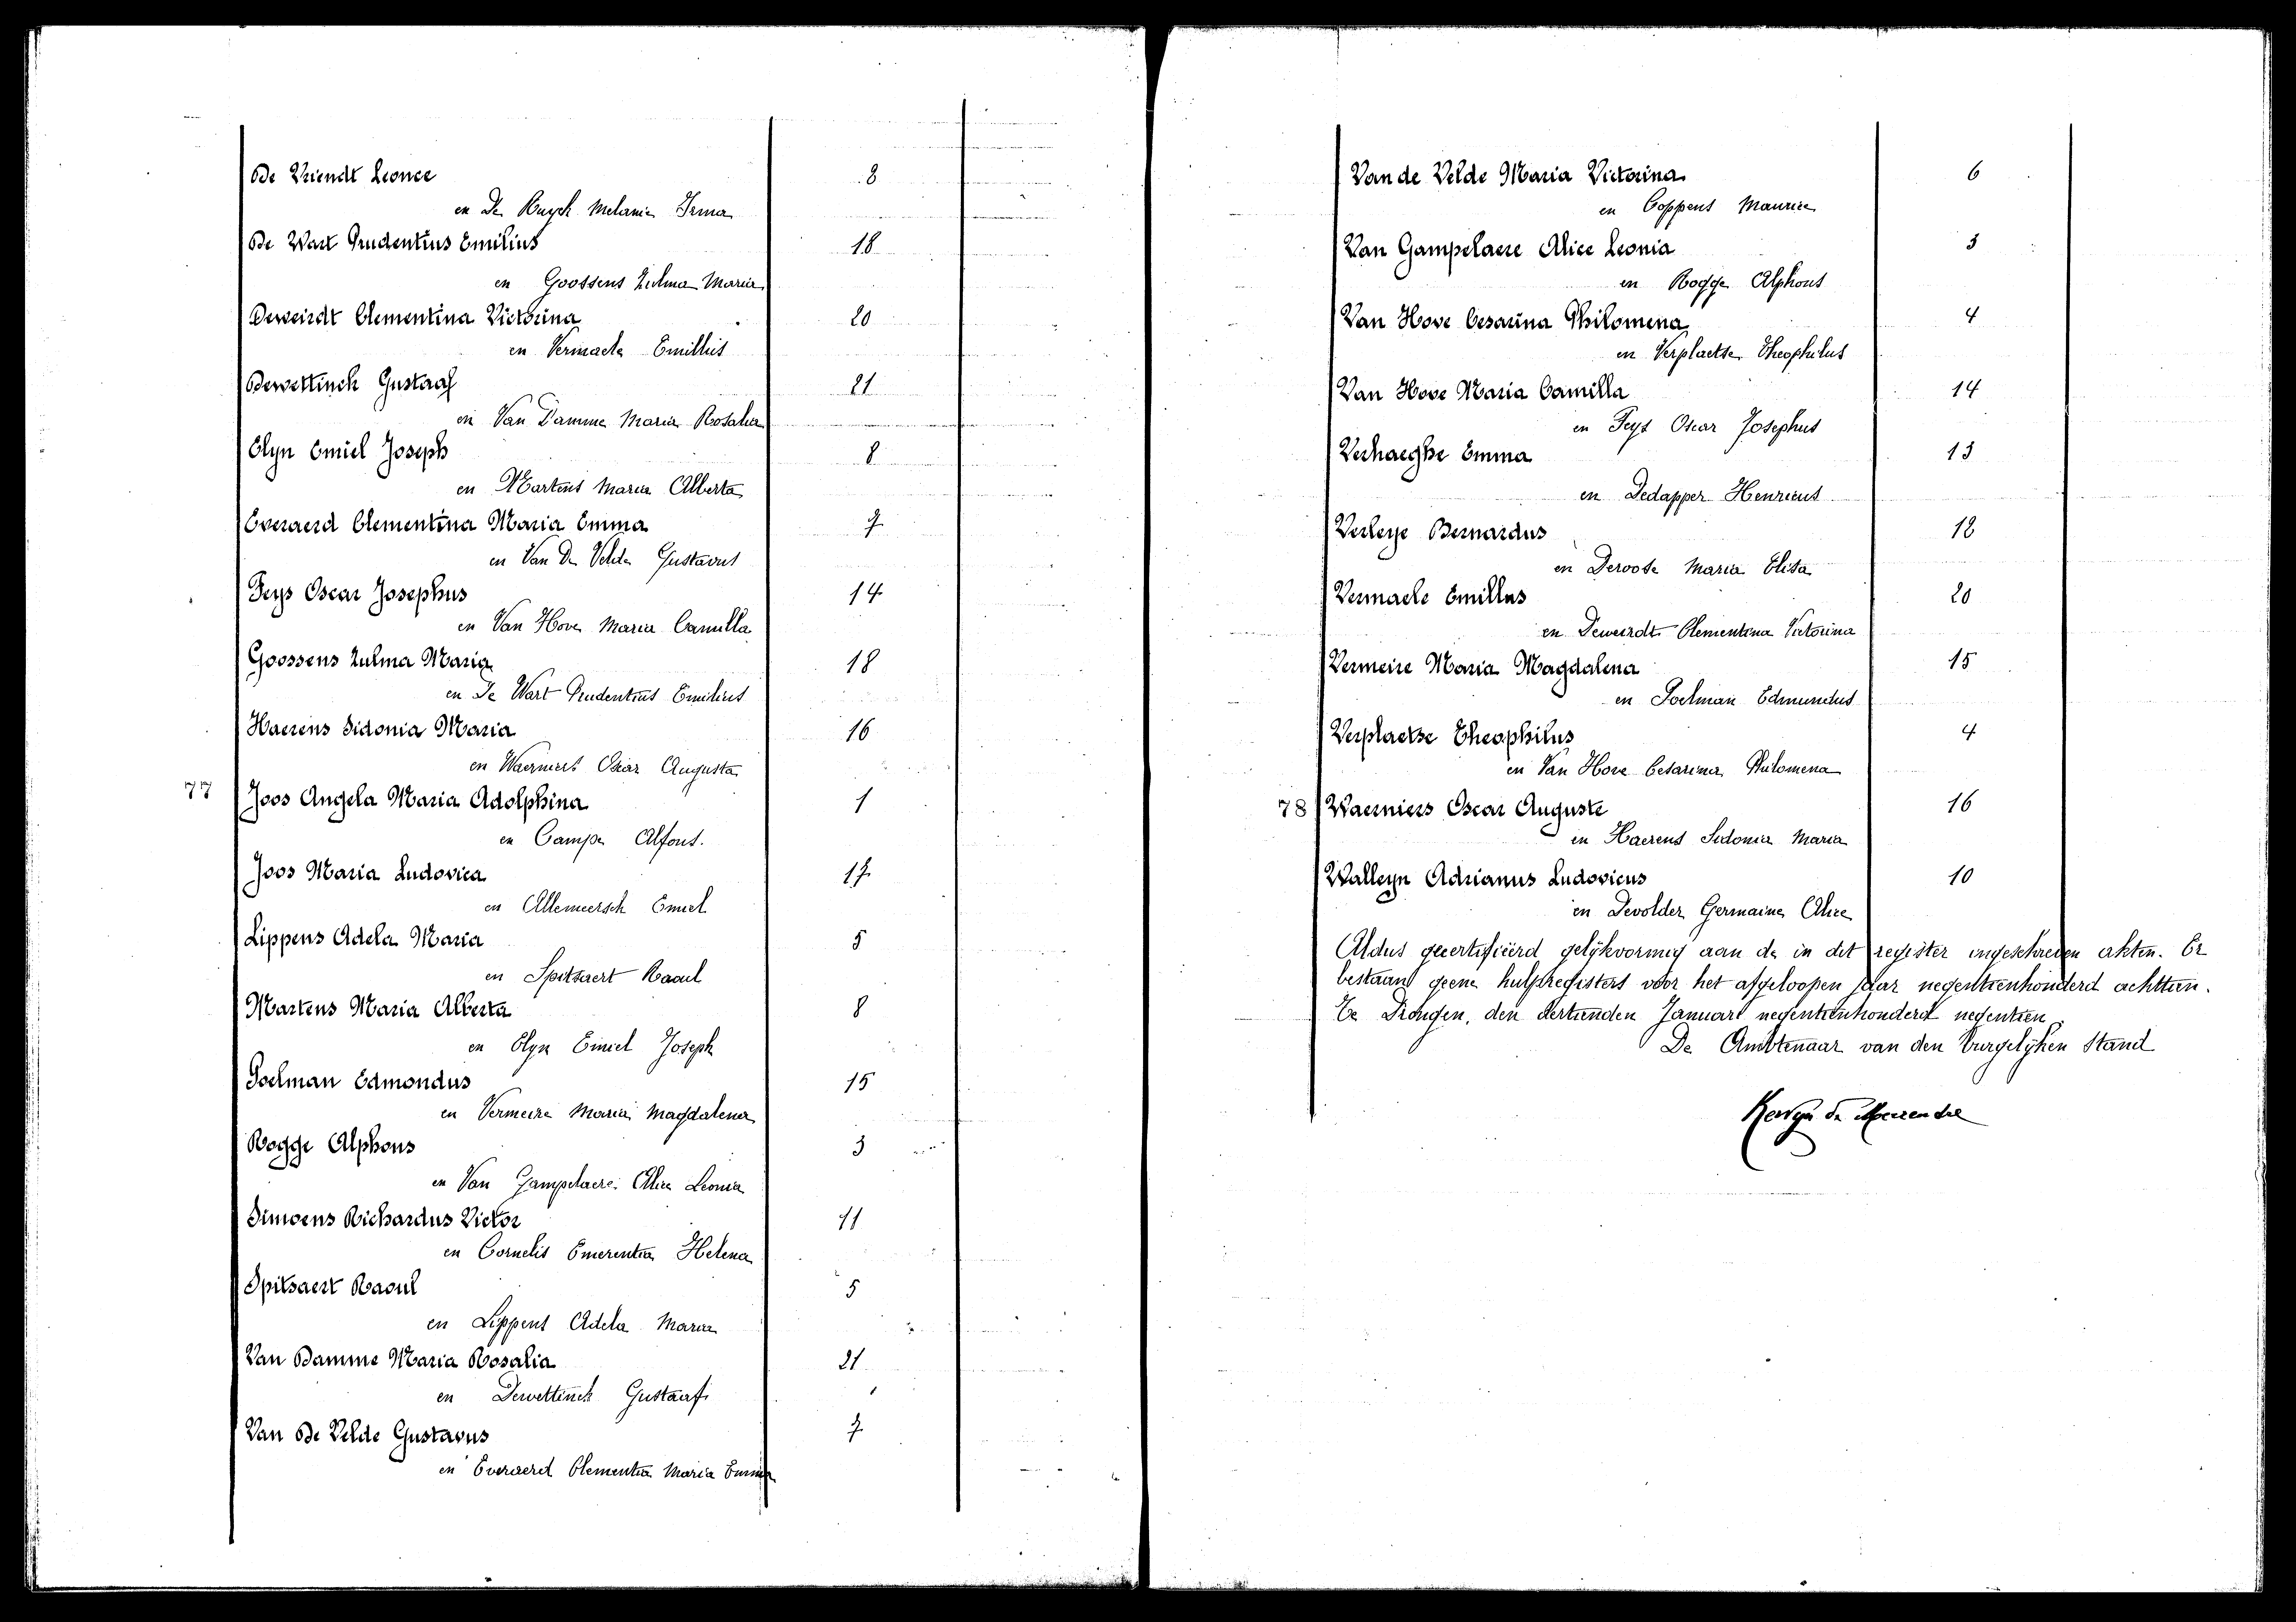 De Vriendt Leonce 8
en De Buyck Melanie Irma
De Wart Prudentius Emilius 18
en Goossens Zulma Maria
Deweirdt Clementina Victorina 20
en Vermaele Emillus
Dewettinck Gustaaf 21
en Van Damme Maria Rosalia
Elyn Emiel Joseph 8
en Martens Maria Alberta
Everaerd Clementina Maria Emma 7
en Van De Velde Gustavus
Feys Oscar Josephus 14
en Van Hove Maria Camilla
Goossens Zulma Maria 18
en De Wart Prudentius Emilius
Haerens Sidonia Maria 16
en Waerniers Oscar Augusta
77 Joos Angela Maria Adolphina 1
en Campe Alfons.
Joos Maria Ludovica 17
en Allemeersch Emiel
Lippens Adela Maria 5
en Spitsaert Raoul
Martens Maria Alberta 8
en Elyn Emiel Joseph
Poelman Edmondus 15
en Vermeire Maria Magdalena
Rogge Alphons 3
en Van Gampelaere Alice Leonia
Simoens Richardus Victor 11
en Cornelis Emerentia Helena
Spitsaert Raoul 5
en Lippens Adela Maria
Van Damme Maria Rosalia 21
en Dewettinck Gustaaf
Van De Velde Gustavus 7
en Everaerd Clementia Maria Emma
Van de Velde Maria Victorina 6
en Coppens Maurice
Van Gampelaere Alice Leonia 3
en Rogge Alphons
Van Hove Cesarina Philomena 4
en Verplaetse Theophilus
Van Hove Maria Camilla 14
en Feys Oscar Josephus
Verhaeghe Emma 13
en Dedapper Henricus
Verleye Bernardus 12
en Deroose Maria Elisa
Vermaele Emillus 20
en Deweirdt Clementina Victorina
Vermeire Maria Magdalena 15
en Poelman Edmundus
Verplaetse Theophilus 4
en Van Hove Cesarina Philomena
78 Waerniers Oscar Auguste 16
en Haerens Sidonia Maria
Walleyn Adrianus Ludovicus 10
en Devolder Germaine Alice
Aldus gecertifieerd gelijkvormig aan de in dit register ingeschreven akten. Er
bestaan geene hulpregisters voor het afgeloopen jaar negentienhonderd achttien.
Te Drongen, den dertienden Januari negentienhonderd negentien.
De Ambtenaar van den burgelijken Stand